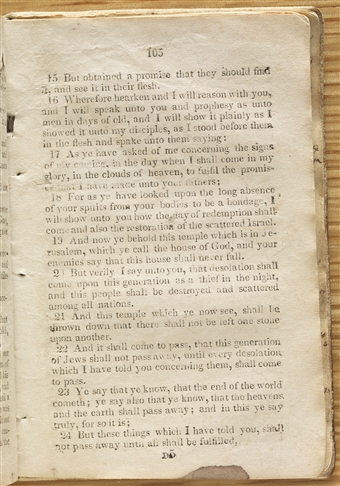 105
15 But obtained a promise that they should find
it, and see it in their flesh.
16 Wherefore hearken and I will reason with you,
and I will speak unto you and prophesy as unto
men in days of old, and I will show it plainly as I
showed it unto my disciples, as I stood before them
in the flesh and spake unto them saying:
17 As ye have asked of me concerning the signs
of my coming, in the day when I shall come in my
glory, in the clouds of heaven, to fulfil the promis-
es that I have made unto your fathers;
18 For as ye have looked upon the long absence
of your spirits from your bodies to be a bondage, I
will show unto you how the day of redemption shall
come and also the restoration of the scattered Israel.
19 And now ye behold this temple which is in Je-
rusalem, which ye call the house of God, and your
enemies say that this house shall never fall.
20 But verily I say unto you, that desolation shall
come upon this generation as a thief in the night,
and this people shall be destroyed and scattered
among all nations.
21 And this temple which ye now see, shall be
thrown down that there shall not be left one stone
upon another.
22 And it shall come to pass, that this generation
of Jews shall not pass away, until every desolation
which I have told you concerning them, shall come
to pass.
23 Ye say that ye know, that the end of the world
cometh; ye say also that ye know, that the heavens
and the earth shall pass away; and in this ye say
truly, for so it is;
24 But these things which I have told you, shall
not pass away until all shall be fulfilled,